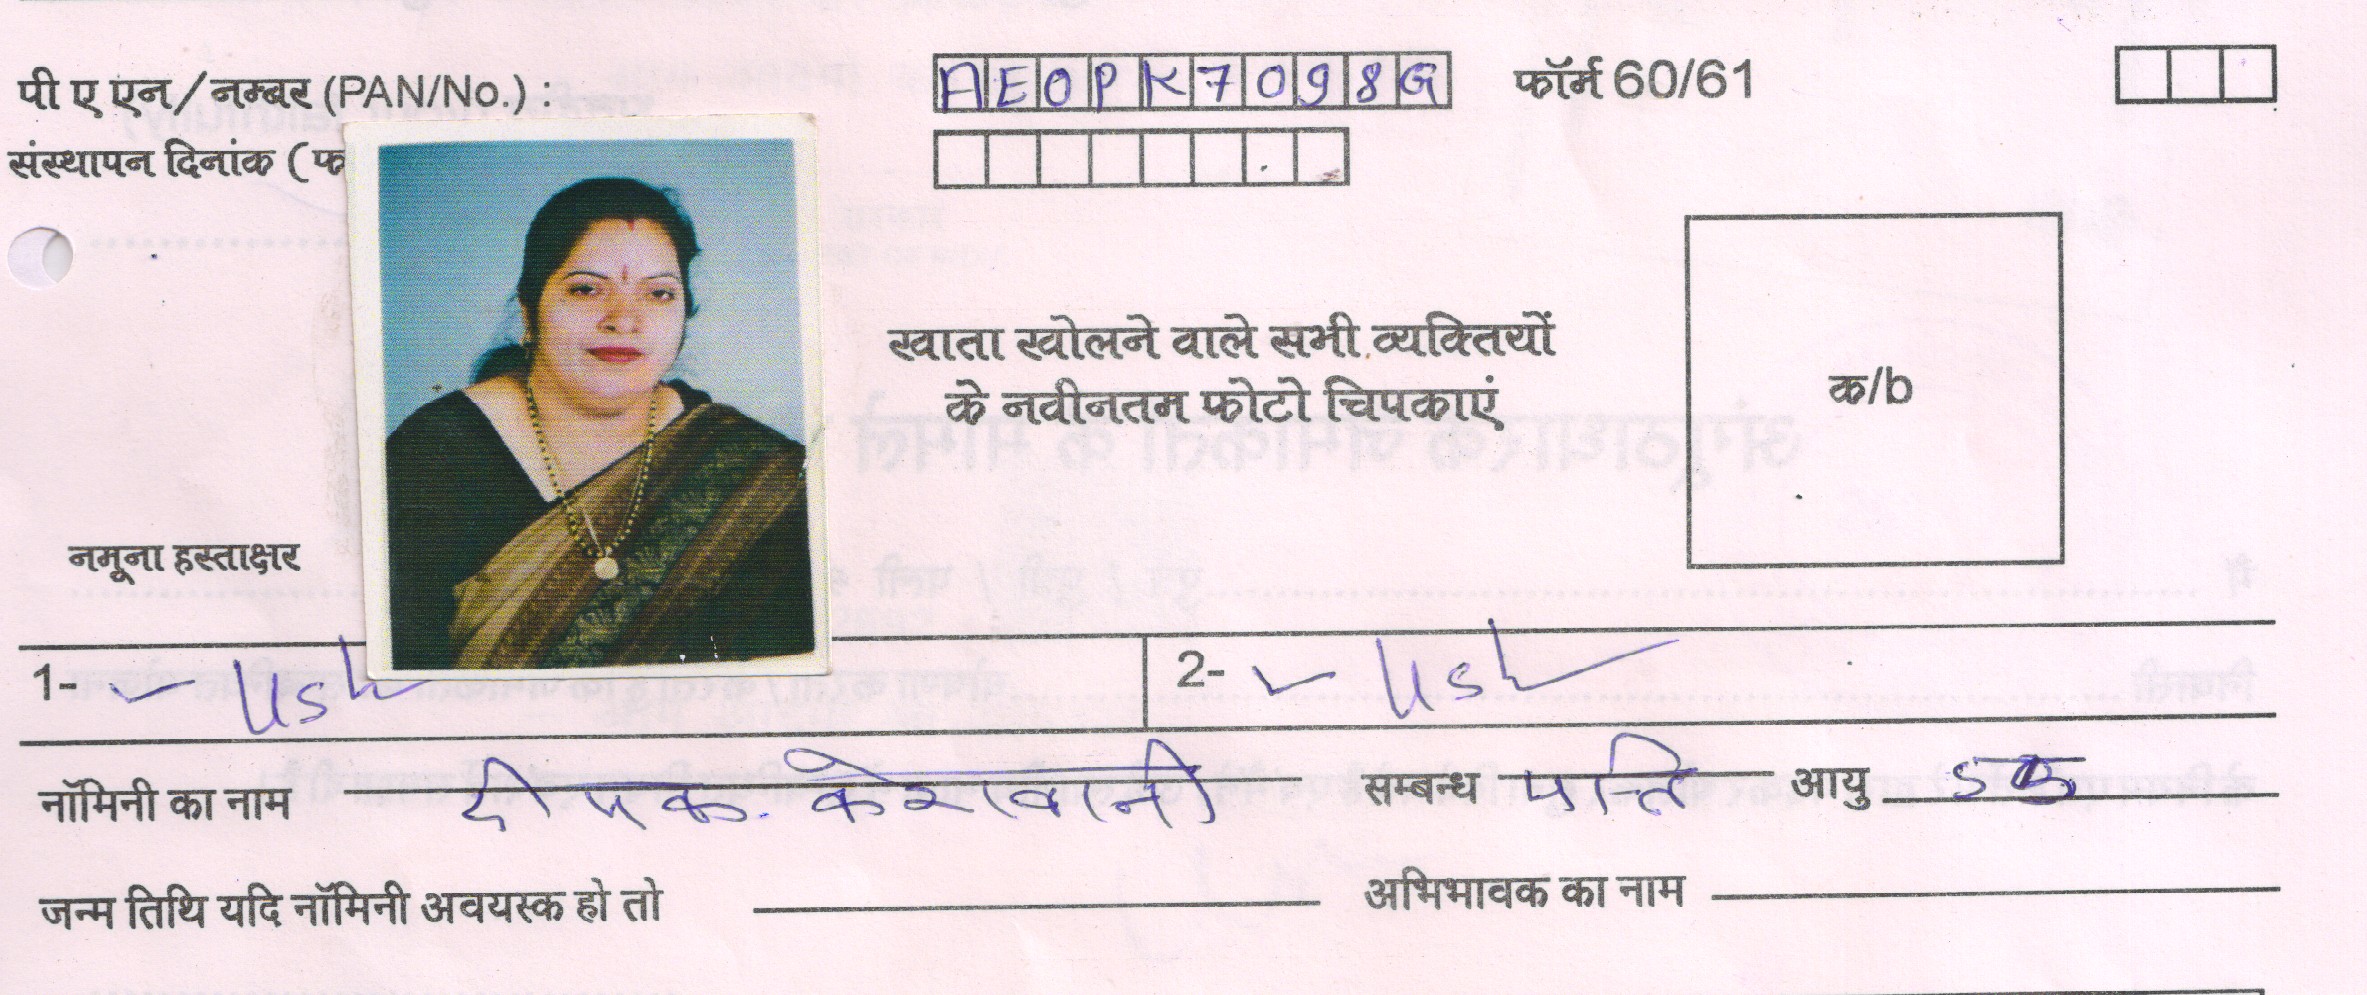 पी ए एन/नम्बर (PAN/No.) : AEOPK7098G फॉर्म 60/61
संस्थापन दिनांक (फ
खाता खोलने वाले सभी व्यक्तियों
के नवीनतम फोटो चिपकाएं
क/b
नमूना हस्ताक्षर
1- Ush 2- Ush
नॉमिनी का नाम दीपक केशरवानी सम्बन्ध पति आयु
जन्म तिथि यदि नॉमिनी अवयस्क हो तो अभिभावक का नाम